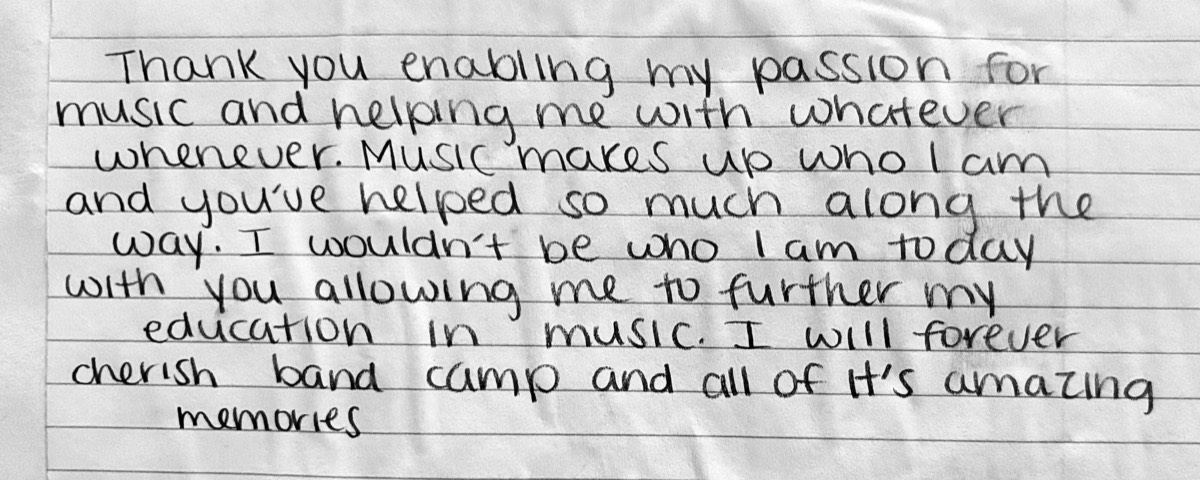 Thank you enabling my passion for
music and helping me with whatever
whenever. Music makes up who I am
and you've helped so much along the
way. I wouldn't be who I am today
with you allowing me to further my
education in music. I will forever
cherish band camp and all of it's amazing
memories